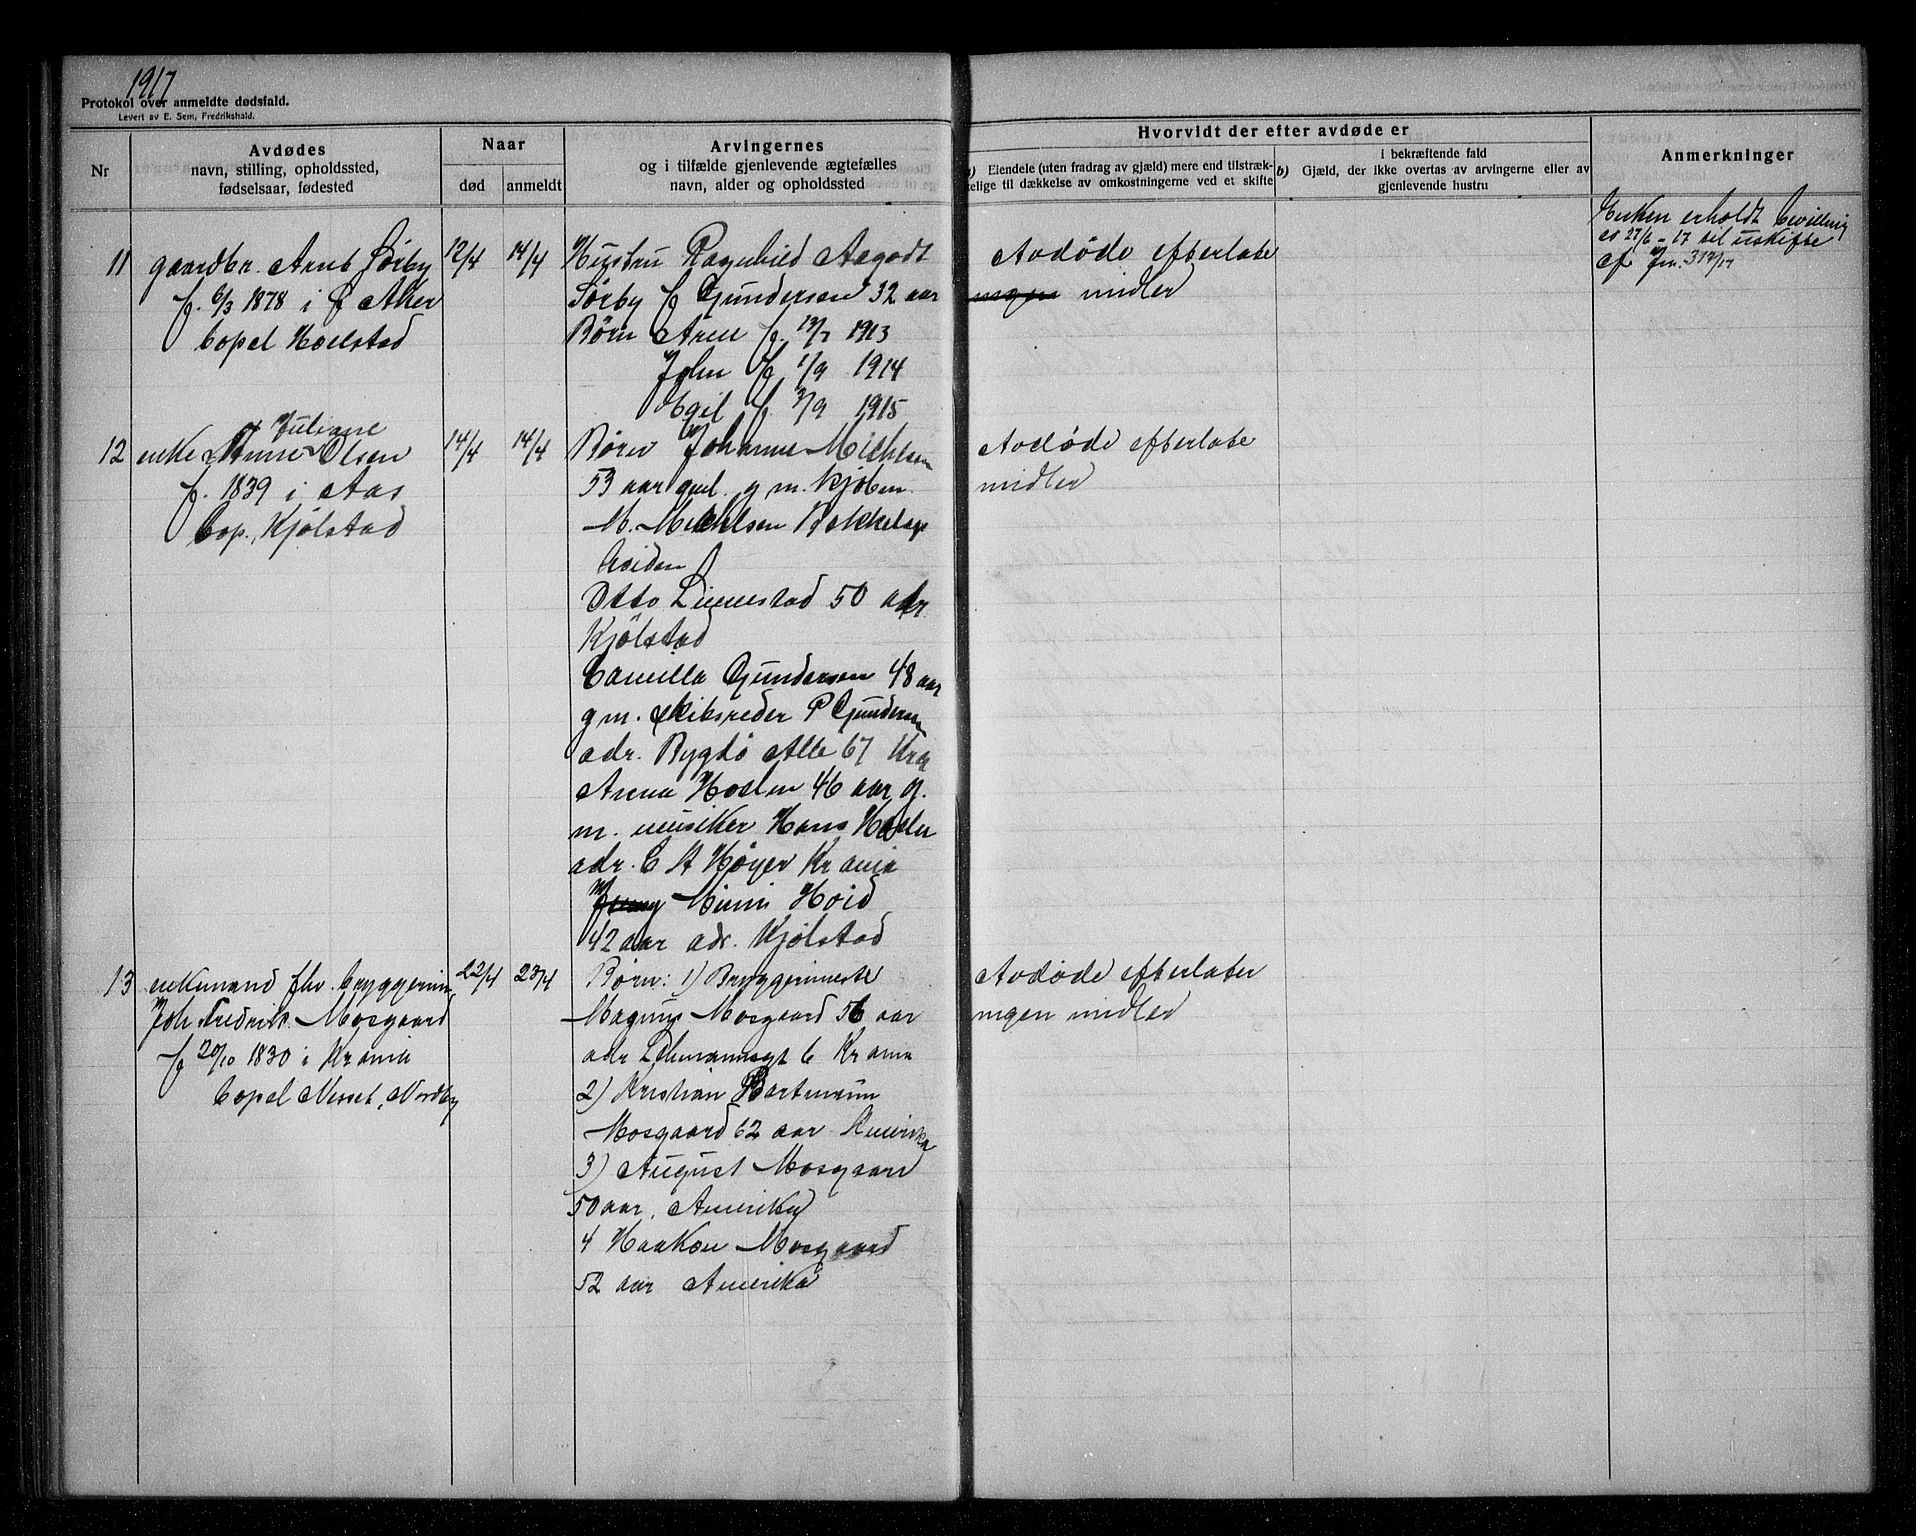 1917
Protokol over anmeldte dødsfald.
Levert av E. Sem, Fredrikshald.
Nr
Avdødes
navn, stilling, opholdssted,
fødselsaar, fødested
Naar
død
anmeldt
Arvingernes
og i tilfælde gjenlevende ægtefælles
navn, alder og opholdssted
Hvorvidt der efter avdøde er
a) Eiendele (uten fradrag av gjæld) mere end tilstræk-
kelige til dækkelse av omkostningerne ved et skifte
i bekræftende fald
b) Gjæld, der ikke overtas av arvingerne eller av
gjenlevende hustru
Anmerkninger
11
gaardbr. Arnt Sörby
f. 6/3 1878 i Ø Aker
bopel Hoelstad
12/4
14/4
Hustru Ragnhild Aagodt
Sörby f Gundersen 32 aar
Børn Arne f. 13/7 1913
John f 1/9 1914
Egil f. 3/9 1915
Avdøde efterlater
ingen midler
Enken erholdt bevilling
27/6-17 til uskifte
cf Jnr. 312/17
12
Juliane
enke Anne Olsen
f. 1839 i Aas
bop. Kjølstad
14/4
14/4
Børn Johanne Michlsen
53 aar gml. g m. kjøbm.
M. Michlsen Bekkelags
Otto Linnestad 50 aar.
Kjölstad
Camilla Gundersen 48 aar
g m. skibsreder P Gundersen
adr. Bygdö Alle 67 Kra
Anna Hoslen 46 aar g.
m. musiker Hans Hosler
adr. C A Høyer Krania
Jenny Mimi Hoid
42 aar adr. Kjølstad
Avdøde efterlater
midler
13
enkemand fhv. bryggerim.
Joh Fredrik Mosgaard
f 20/10 1830 i Krania
bopel Nesset, Nordby
22/4
23/4
Børn: 1) Bryggerimeste
Magnus Mosgaard 56 aar
adr Lehmannsgt 6 Krania
2) Kristian Hartmann
Mosgaard 62 aar Amerika
3) August Mosgaard
50 aar. Amerika
4 Haakon Mosgaard
52 aar Amerika
Avdøde efterlater
ingen midler